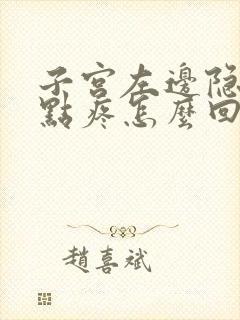 子宮左邊隐
點疼怎麼回
趙喜斌